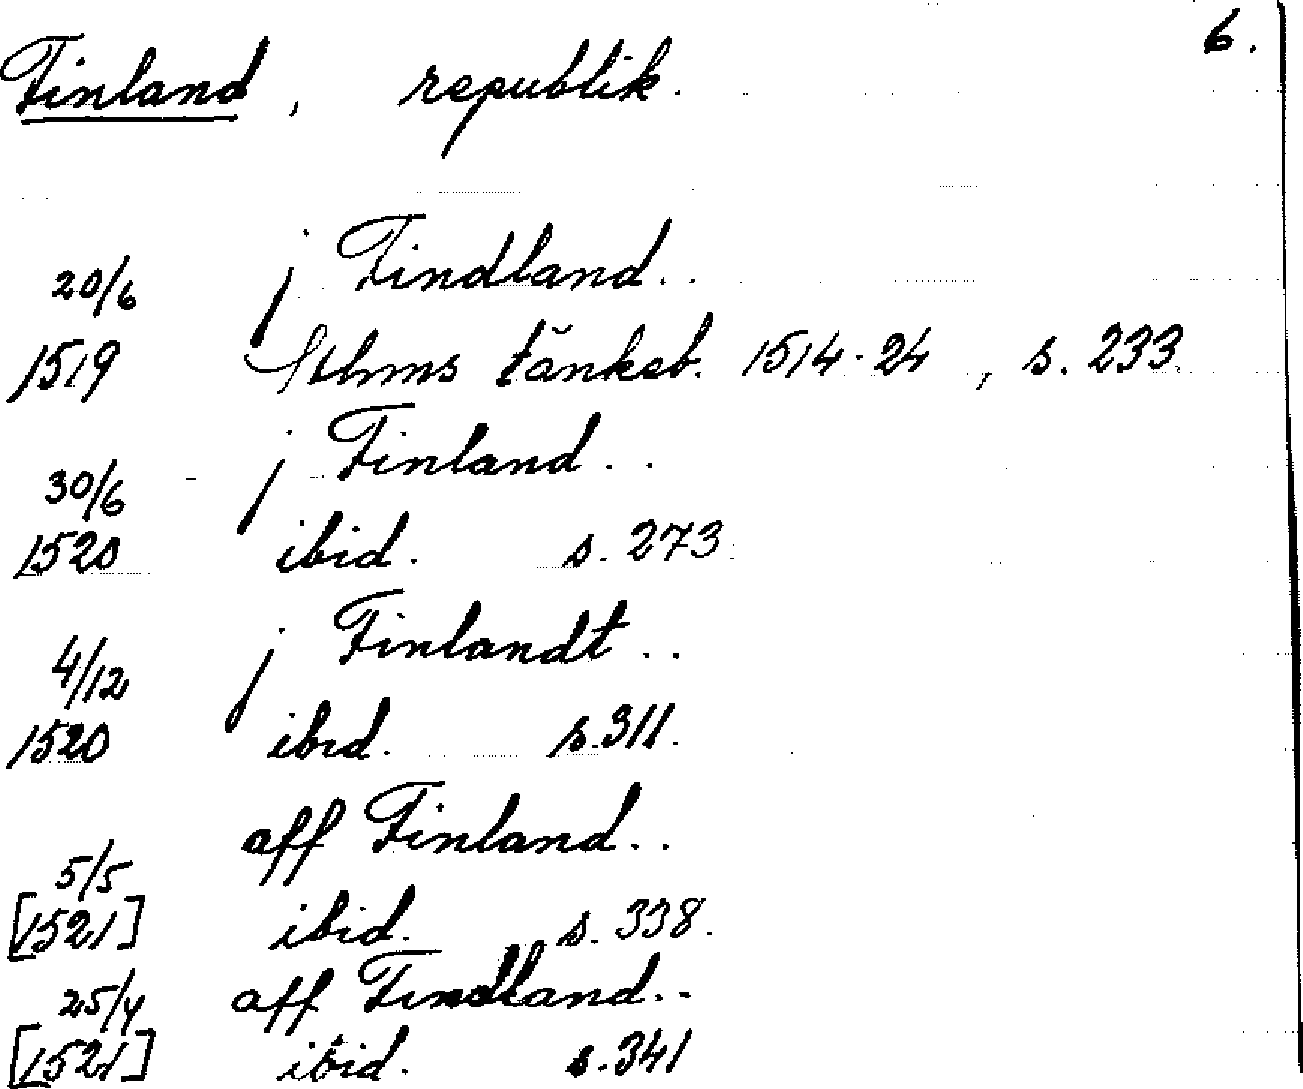 6.
Finland, republik.
20/6 j Findland..
1519 Sthms tänkeb. 1514-24, s. 233.
30/6 j Finland..
1520 ibid. s. 273.
4/12 j Finlandt..
1520 ibid. s. 311.
5/5 aff Finland..
[1521] ibid. s. 338.
25/4 aff Findland..
[1521] ibid. s. 341